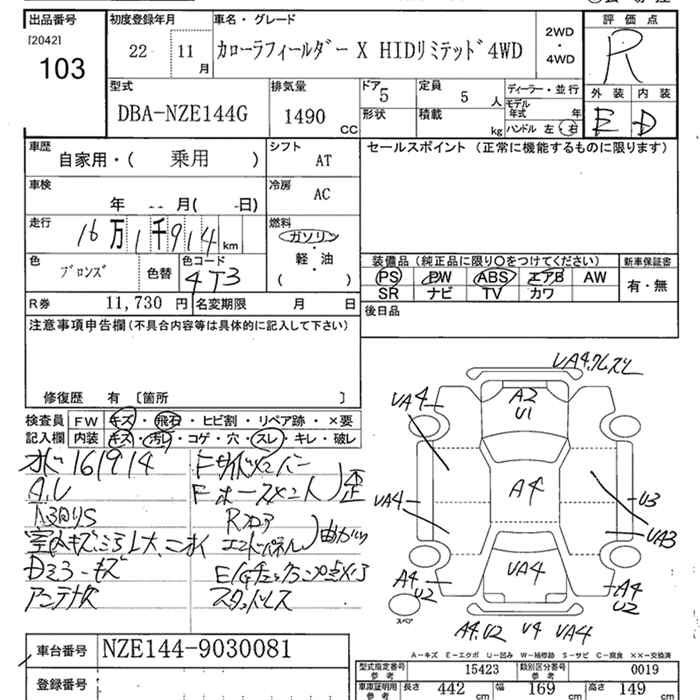 出品番号
[2042]
103
初度登録年月
22 11 月
車名・グレード
カローラフィールダー X HIDリミテッド 4WD
2WD
・
4WD
評価点
R
外装 内装
E D
型式
DBA-NZE144G
排気量
1490 CC
ドア 5
形状
定員 5 人
積載 kg
ディーラー・並行
モデル年式 年
ハンドル 左 右
車歴
自家用・( 乗用 )
シフト
AT
車検
年 -- 月( -日)
冷房
AC
走行
16万1千914 km
燃料
ガソリン
・
軽・油
( )
色
ブロンズ
色替
色コード
4T3
R券 11,730 円
名変期限 月 日
セールスポイント (正常に機能するものに限ります)
装備品 (純正品に限り○をつけてください)
PS PW ABS エアB AW
SR ナビ TV カワ
新車保証書
有・無
後日品
注意事項申告欄(不具合内容等は具体的に記入して下さい)
修復歴 有 〔箇所 〕
検査員
記入欄
FW キズ・飛石・ヒビ割・リペア跡・×要
内装 キズ・汚レ・コゲ・穴・スレ・キレ・破レ
161914
Fサイドメンバー
A.V
Rフロア
エンドパネル
Dミラーキズ
アンテナ欠
スタッドレス
VA4.ワレズレ
A2
U1
VA4
A4
VA4
U3
VA3
VA4
A4
U2
A4
U2
スペア
A4.U2 V4 VA4
A-キズ E-エクボ U-凹み W-補修跡 S-サビ C-腐食 XX-交換済
車台番号 NZE144-9030081
登録番号
型式指定番号
参考
15423
類別区分番号
参考
0019
車庫証明用
参考
長さ 442 cm
幅 169 cm
高さ 149 cm